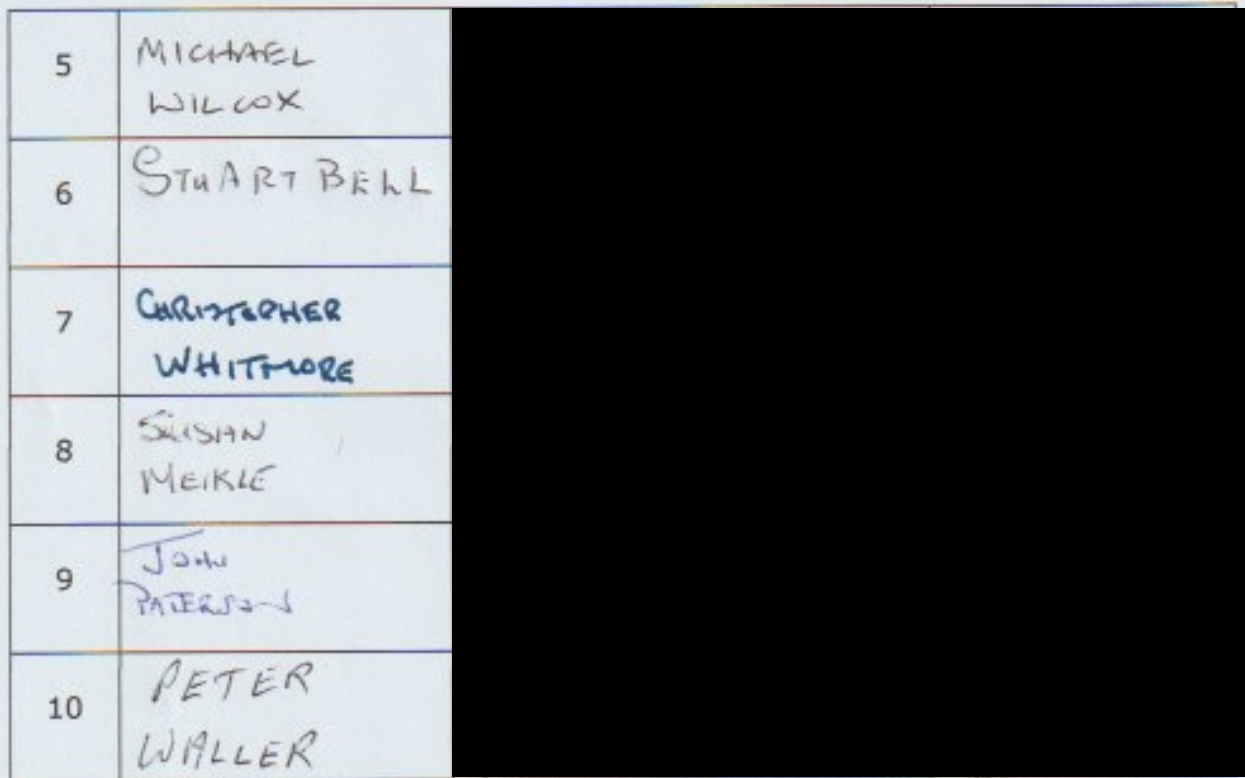 5
MICHAEL
WILCOX
6
STUART BELL
7
CHRISTOPHER
WHITMORE
8
SUSAN
MEIKLE
9
JOHN
PATERSON
10
PETER
WALLER